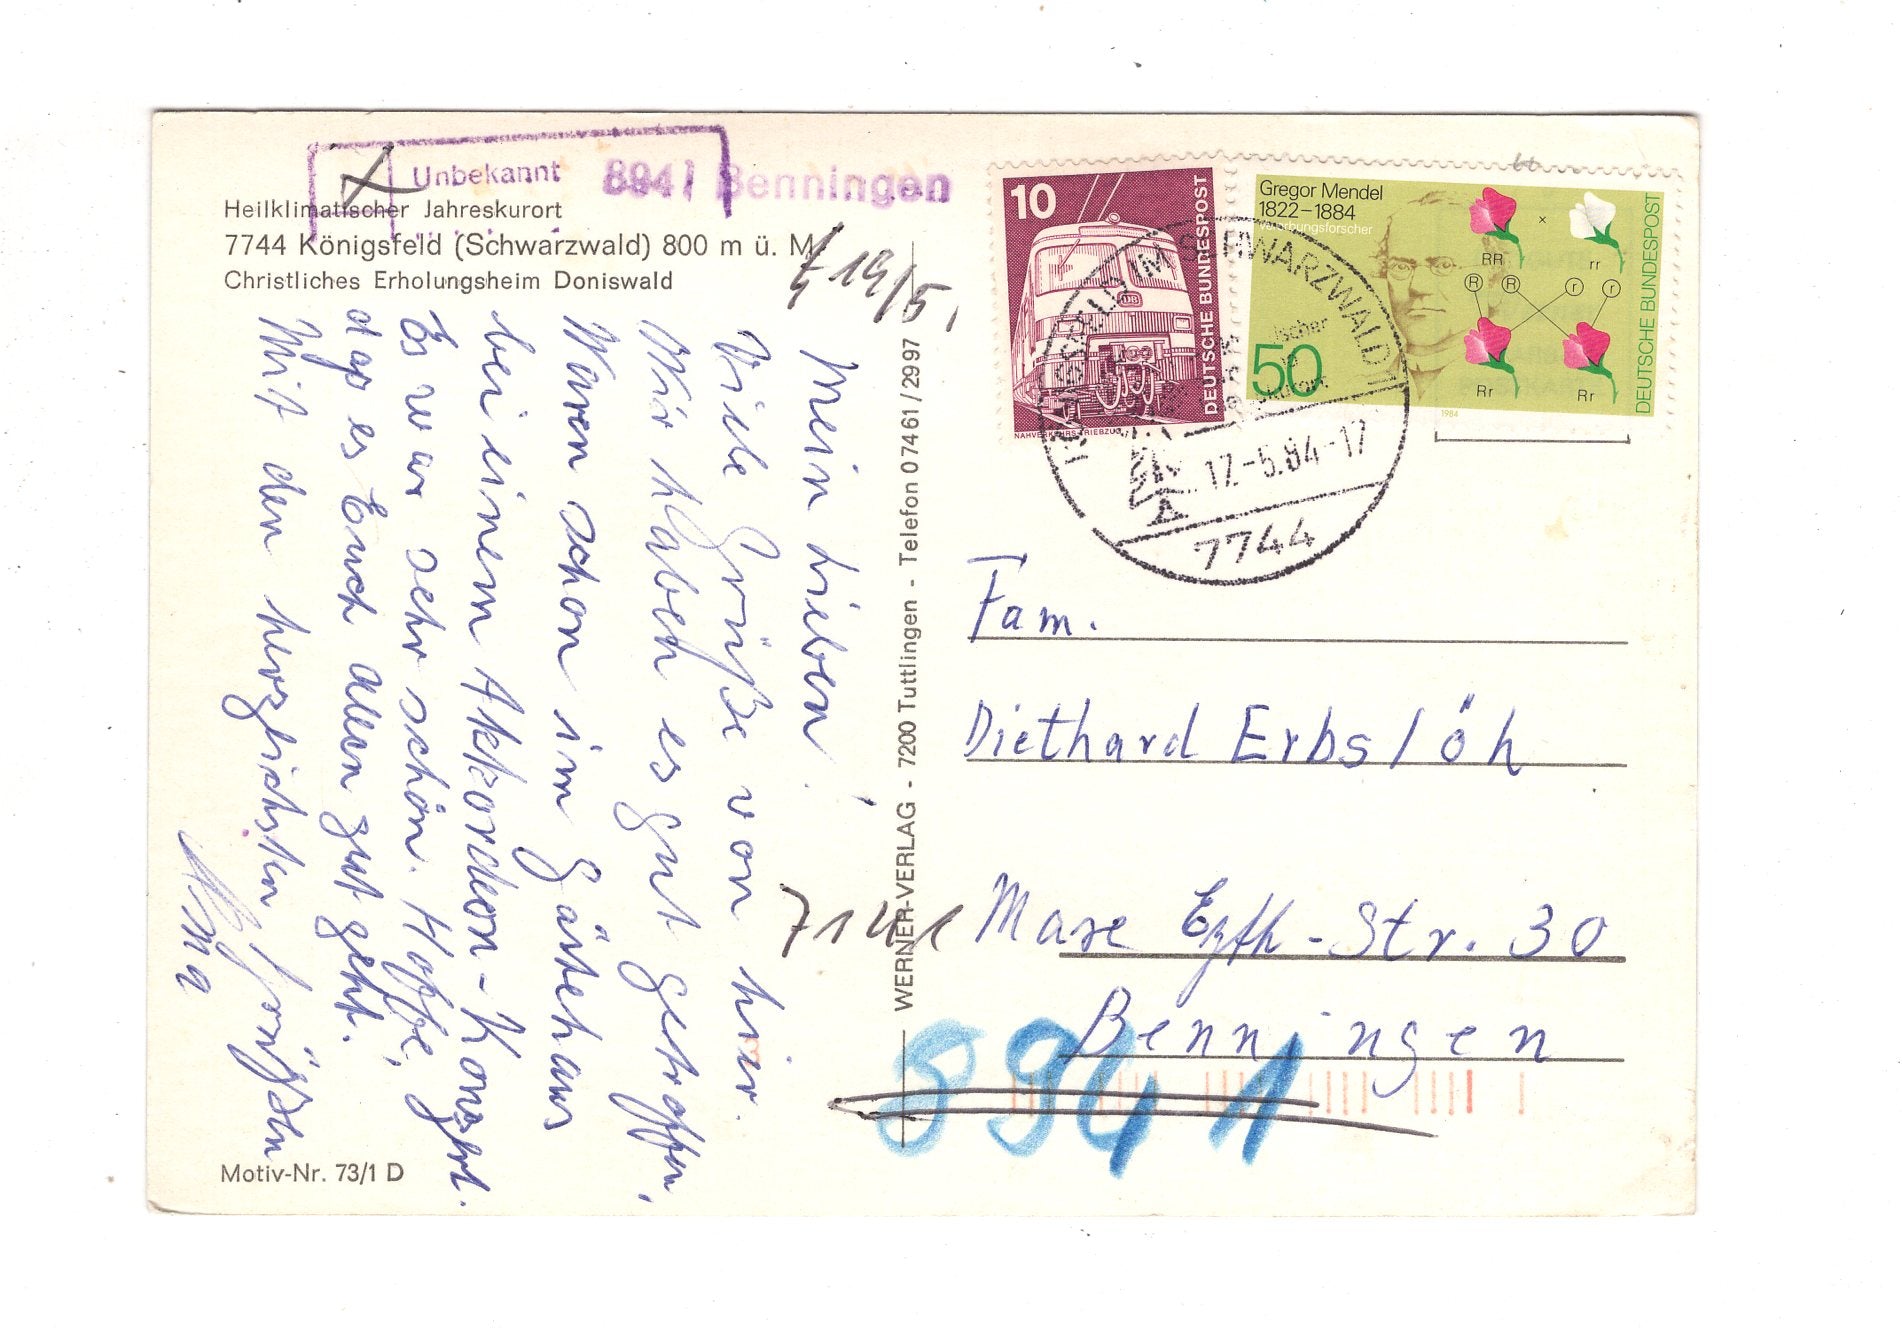 Unbekannt
8941 Benningen
Heilklimatischer Jahreskurort
7744 Königsfeld (Schwarzwald) 800 m ü. M.
Christliches Erholungsheim Doniswald
Mein Lieben!
Viele Grüße von hier.
Wir haben es gut getroffen,
Waren schon im Gästehaus
bei einem Akkordeon-Konzert.
Es war sehr schön. Hoffe,
daß es Euch allen gut geht.
Mit den herzlichsten Grüßen
Motiv-Nr. 73/1 D
WERNER-VERLAG - 7200 Tuttlingen - Telefon 07461/2997
10
DEUTSCHE BUNDESPOST
NAHVERKEHRS-TRIEBZUG
Gregor Mendel
1822–1884
Vererbungsforscher
RR
×
rr
R
R
r
r
Rr
Rr
50
DEUTSCHE BUNDESPOST
1984
KÖNIGSFELD IM SCHWARZWALD 1
17.-5.84-17
A
7744
Fam.
Diethard Erbslöh
7141
Str. 30
Benningen
8941